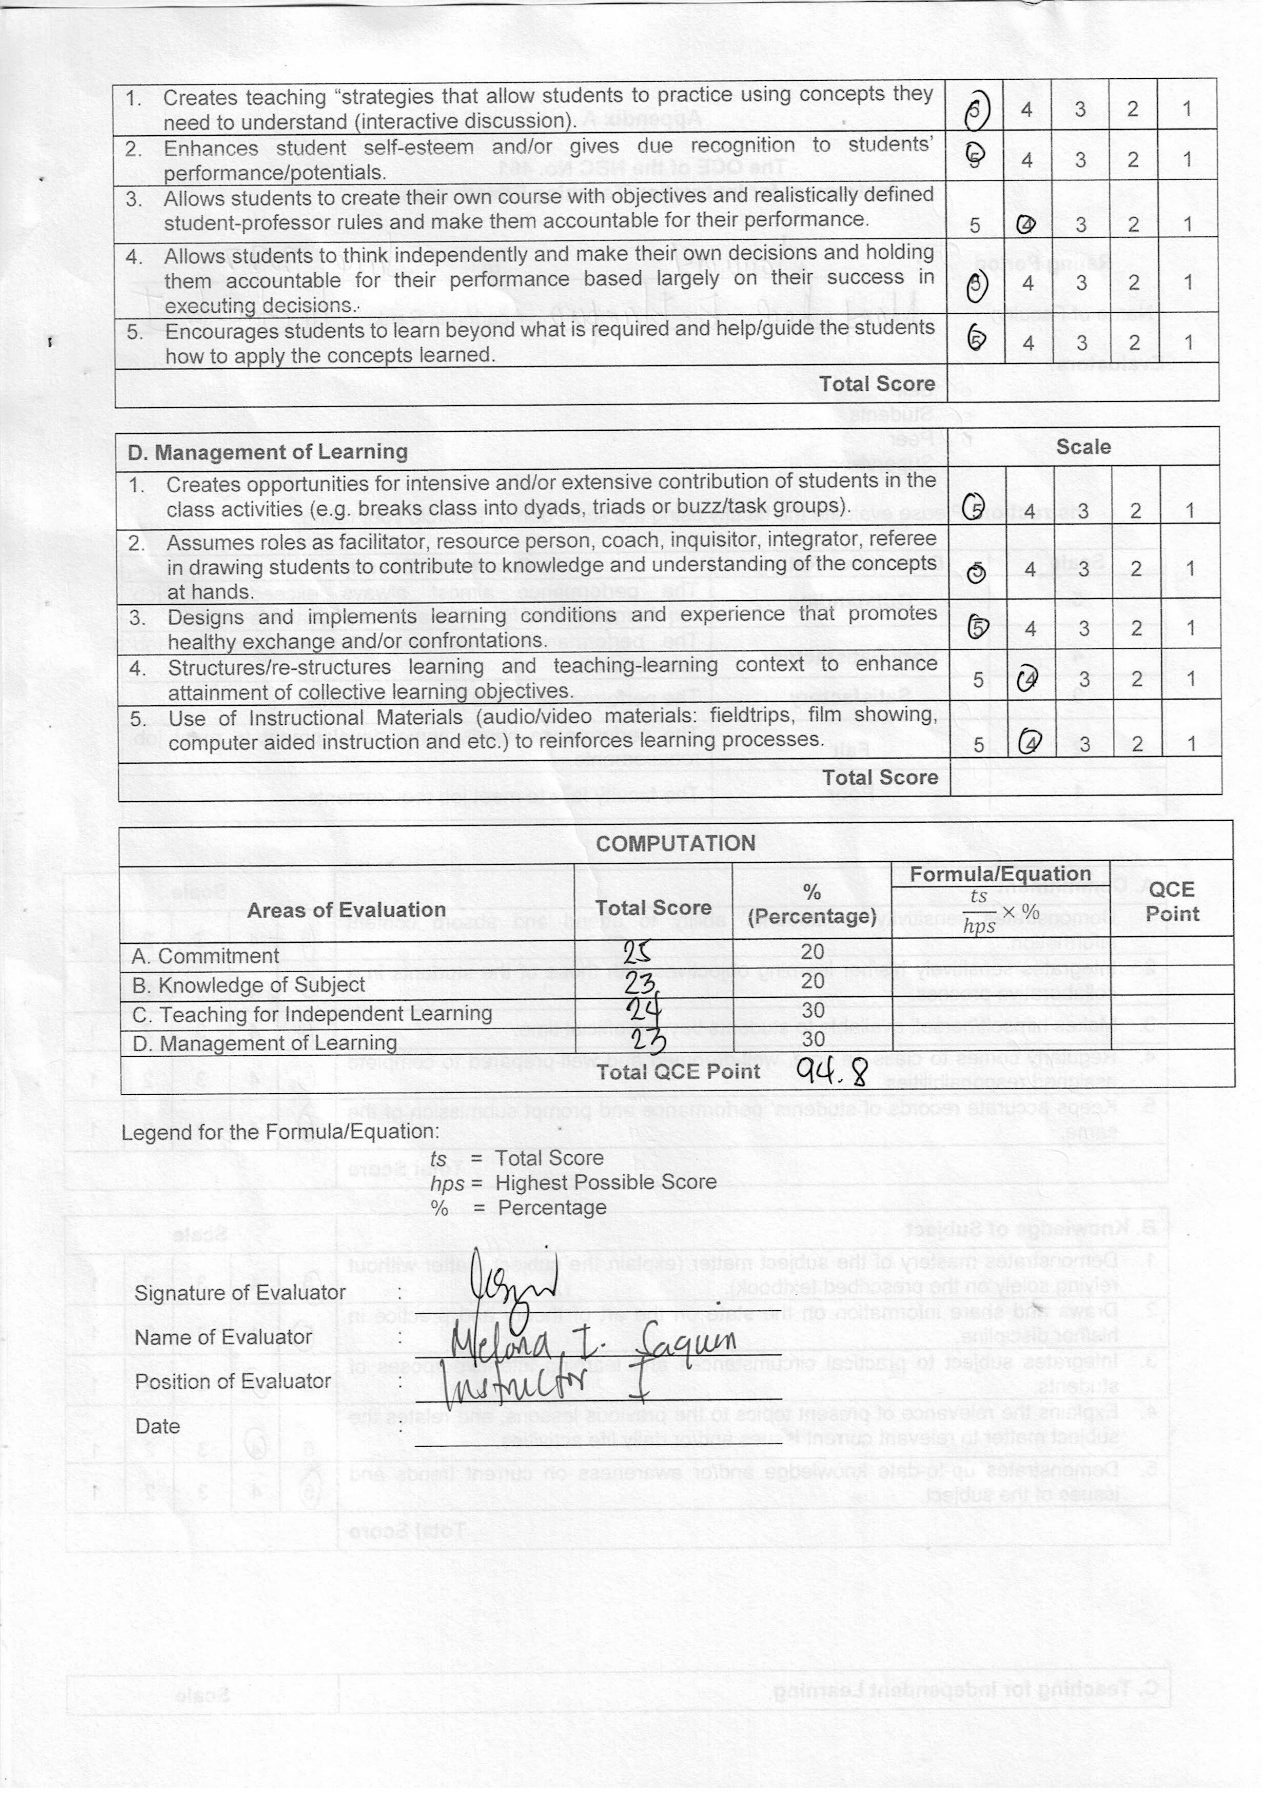 1. Creates teaching “strategies that allow students to practice using concepts they
need to understand (interactive discussion). 5 4 3 2 1
2. Enhances student self-esteem and/or gives due recognition to students’
performance/potentials. 5 4 3 2 1
3. Allows students to create their own course with objectives and realistically defined
student-professor rules and make them accountable for their performance. 5 4 3 2 1
4. Allows students to think independently and make their own decisions and holding
them accountable for their performance based largely on their success in 5 4 3 2 1
executing decisions.
5. Encourages students to learn beyond what is required and help/guide the students
how to apply the concepts learned. 5 4 3 2 1
Total Score
D. Management of Learning Scale
1. Creates opportunities for intensive and/or extensive contribution of students in the
class activities (e.g. breaks class into dyads, triads or buzz/task groups). 5 4 3 2 1
2. Assumes roles as facilitator, resource person, coach, inquisitor, integrator, referee
in drawing students to contribute to knowledge and understanding of the concepts 5 4 3 2 1
at hands.
3. Designs and implements learning conditions and experience that promotes
healthy exchange and/or confrontations. 5 4 3 2 1
4. Structures/re-structures learning and teaching-learning context to enhance
attainment of collective learning objectives. 5 4 3 2 1
5. Use of Instructional Materials (audio/video materials: fieldtrips, film showing,
computer aided instruction and etc.) to reinforces learning processes. 5 4 3 2 1
Total Score
COMPUTATION
Areas of Evaluation Total Score % (Percentage) Formula/Equation ts/hps × % QCE Point
A. Commitment 25 20
B. Knowledge of Subject 23 20
C. Teaching for Independent Learning 24 30
D. Management of Learning 23 30
Total QCE Point 94.8
Legend for the Formula/Equation:
ts = Total Score
hps = Highest Possible Score
% = Percentage
Signature of Evaluator :
Name of Evaluator : I. Saquin
Position of Evaluator : Instructor I
Date :